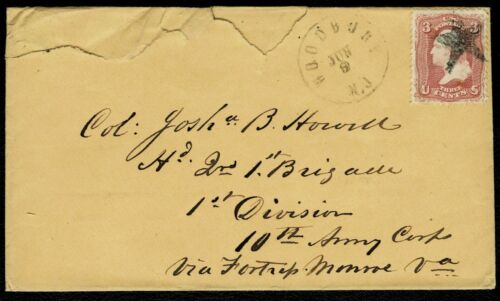 WOODBURY
JUN
9
N.J.
3 U.S. POSTAGE 3
U THREE CENTS S
Col: Josh.a B. Howell
Hd. Qrs 1st Brigade
1st Division
10th Army Corps
Via Fortress Monroe Va